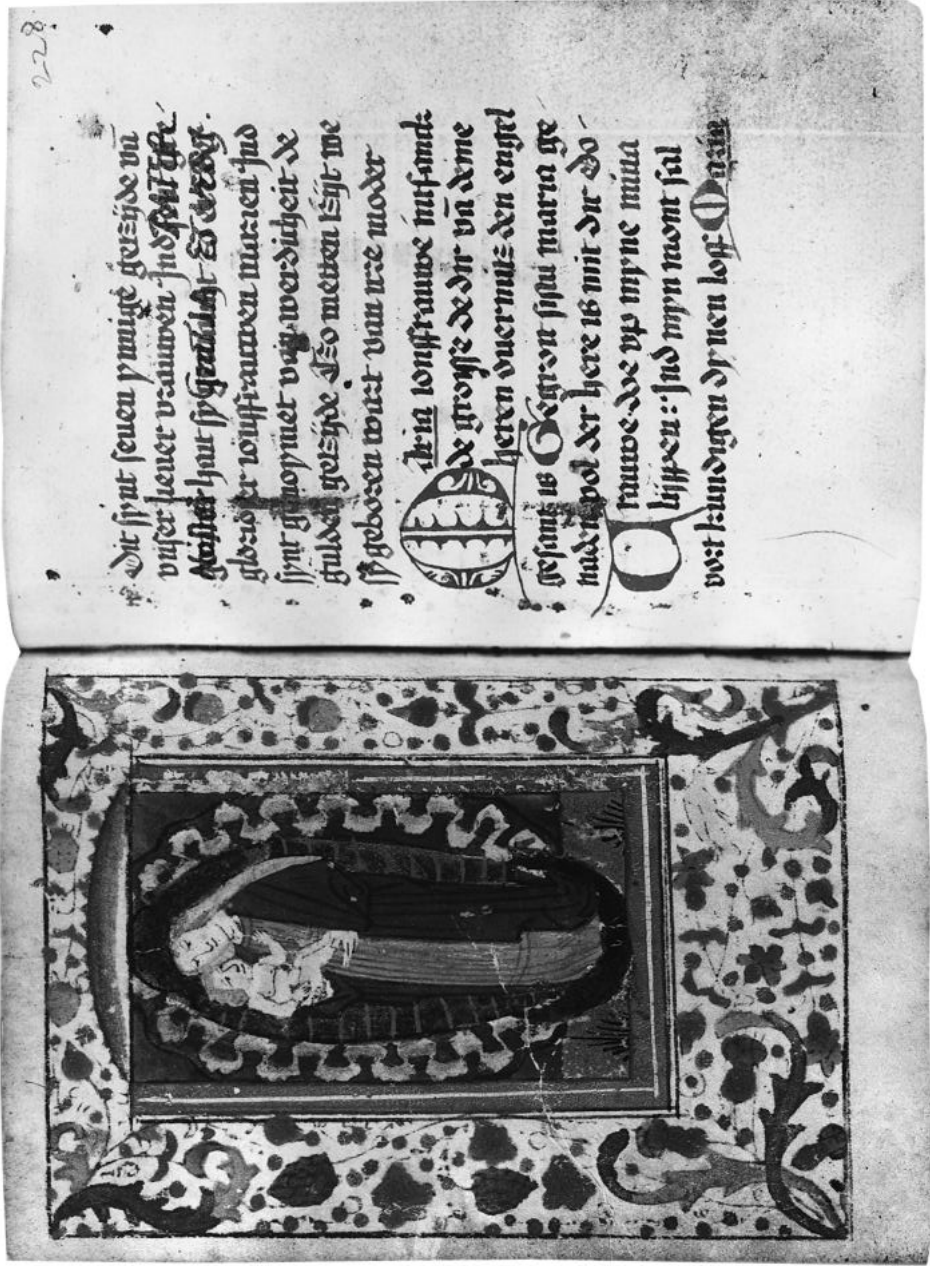 228
Dit synt seuen ynnige getzijde vā
vnser lieuer vrauwen Ind
hait sy
glorioser ionffrauwen marien Ind
synt genoymet van werdicheit de
gulden getzijde Tzo metten tzijt we
sy geboren wart van yre moder
Maria ionffrauwe
de groysse de dir vā deme
heren ouermitz den engel
gesant is Gegroit sistu maria ge
naden vol der here is mit dir Do-
Vrauwe doe vp myne
lippen: Ind myn mont sal
vort kundigen dynen loff